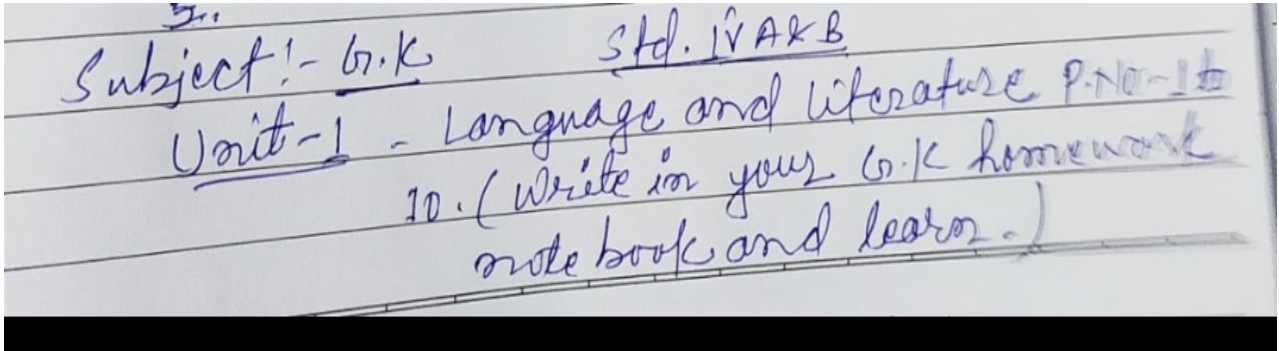 Subject:- G.K Std. IV A & B
Unit-1 - Language and literature P.No-1 to
10. (Write in your G.K homework
note book and learn.)